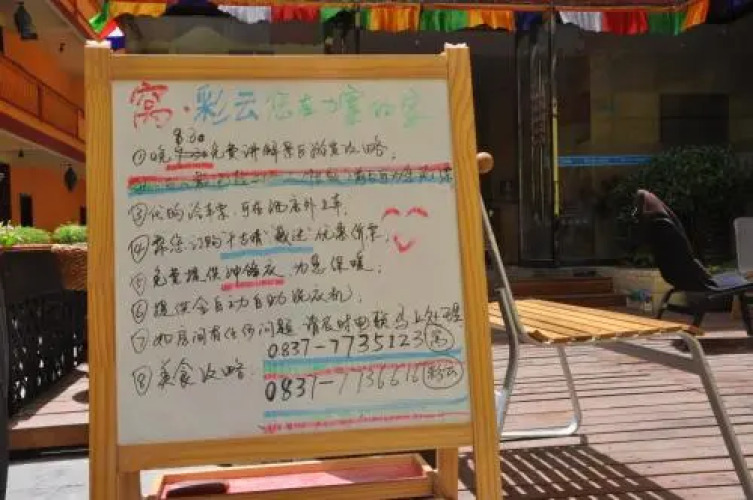 窝·彩云 您在九寨的家
8:30
①晚7:30免费讲解景区游览攻略。
③代购汽车票,可在酒店外上车。
④帮您订购"千古情""藏谜"优惠价票。
⑤免费提供冲锋衣,为您保暖。
⑥提供全自动自助洗衣机。
⑦如房间有任何问题 请及时电联 马上处理
0837-7735123 窝
⑧美食攻略。
0837-7736616 彩云